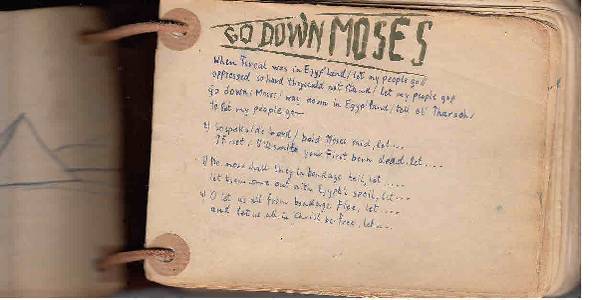 GO DOWN MOSES
When Isreal was in Egyp'land/ let my people go/
oppressed so hard they could not stand/ let my people go/
Go down, Moses/ way down in Egyp'land/ tell ol' Pharaoh/
to let my people go
2) bold Moses said, let...
If not, I'll smite your first born dead, let....
3) No more shall they in bondage toil, let....
let them come out with Egypt's spoil, let...
4) O let us all from bondage flee, let....
and let us all in Christ be free, let...